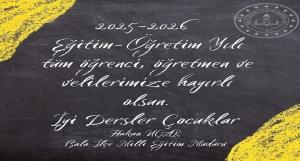 2025-2026
Eğitim-Öğretim Yılı
tüm öğrenci, öğretmen ve
velilerimize hayırlı
olsun.
İyi Dersler Çocuklar
Hakan UÇAR
Bala İlçe Milli Eğitim Müdürü